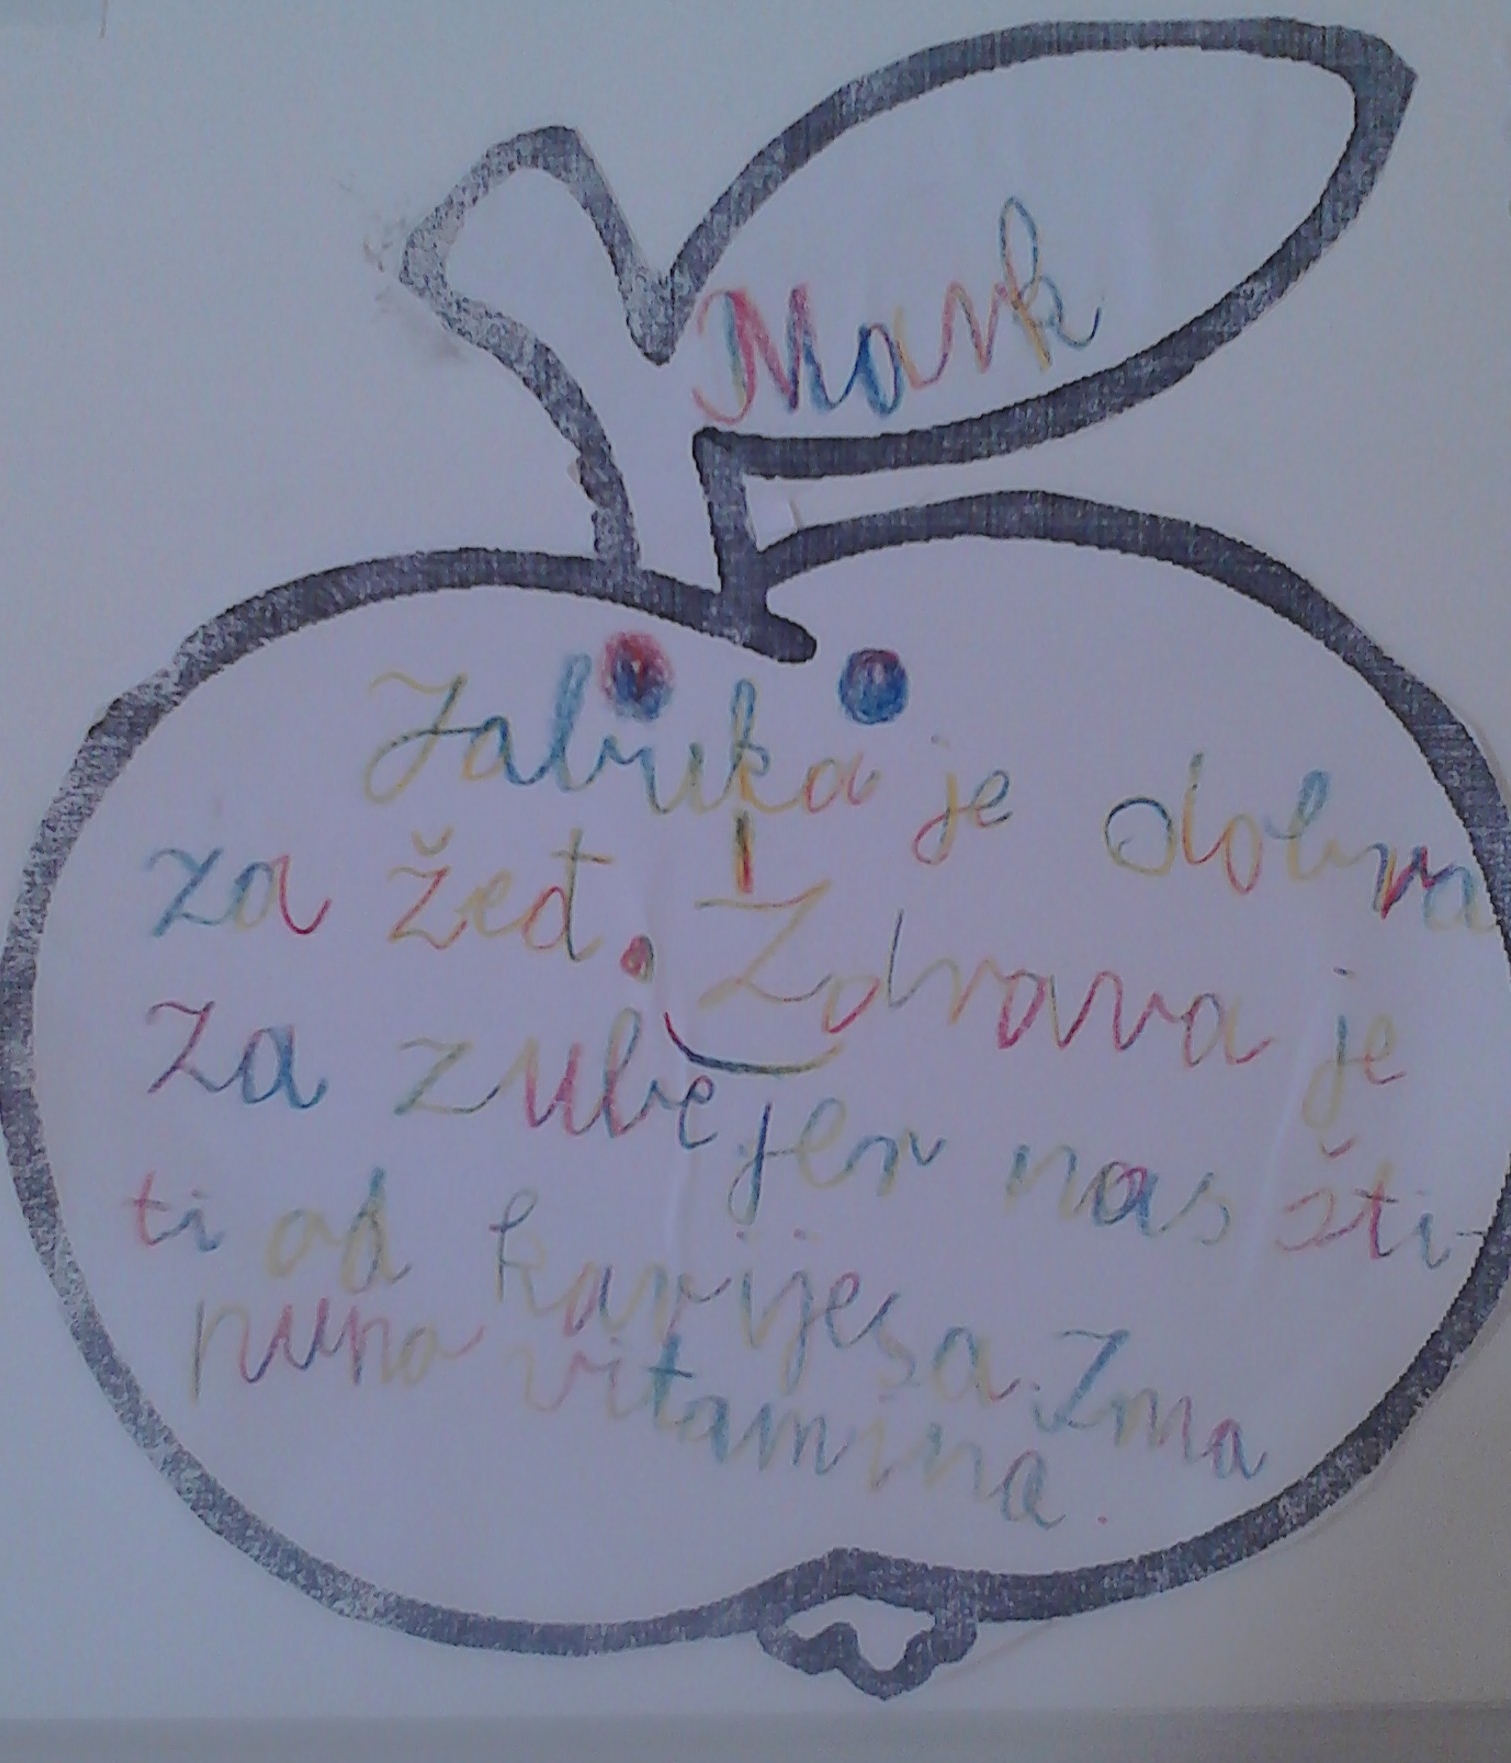 Mark
Jabuka je dobra
za žeđ. Zdrava je
za zube jer nas šti-
ti od karijesa. Ima
puno vitamina.